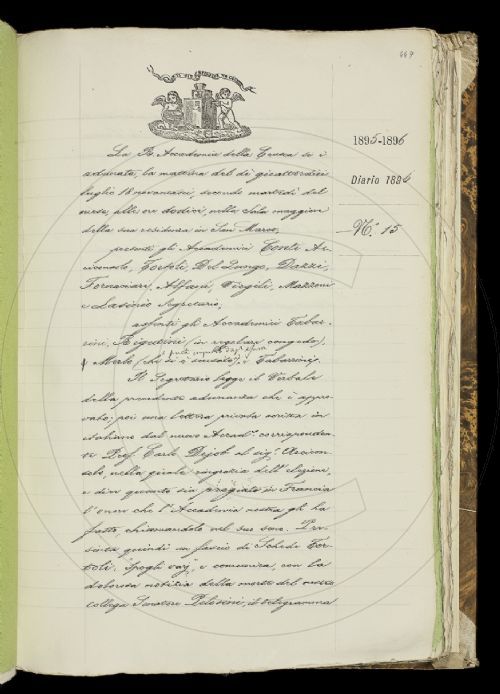 669
1895-1896
Diario 1896
N.° 15
La R. Accademia della Crusca si è
adunata, la mattina del dì
luglio 18 novantasei, secondo martedì del
mese, alle ore dodici, nella Sala maggiore
della sua residenza in San Marco,
presenti gli Accademici Conti Ar-
ciconsolo, Tortoli, Del Lungo, Dazzi,
Fornaciari, Alfani, Virgili, Mazzoni
e Lasinio Segretario,
assenti gli Accademici Tabar-
rini, Rigutini (in regolare congedo),
Merlo (che si è scusato),
Il Segretario legge il Verbale
della precedente adunanza che è appro-
vato; poi una lettera privata scritta in
italiano dal nuovo Accad.° corrisponden-
te Prof. Carlo Dejob al sig.r Arcicon-
solo, nella quale ringrazia dell'elezione,
e dice quanto sia pregiato in Francia
l'onore che l'Accademia nostra gli ha
fatto, chiamandolo nel suo seno. Pre-
senta quindi un fascio di Schede Tor-
toli, Spogli varj, e comunica, con la
dolorosa notizia della morte del nostro
collega Senatore Pelosini, il telegramma